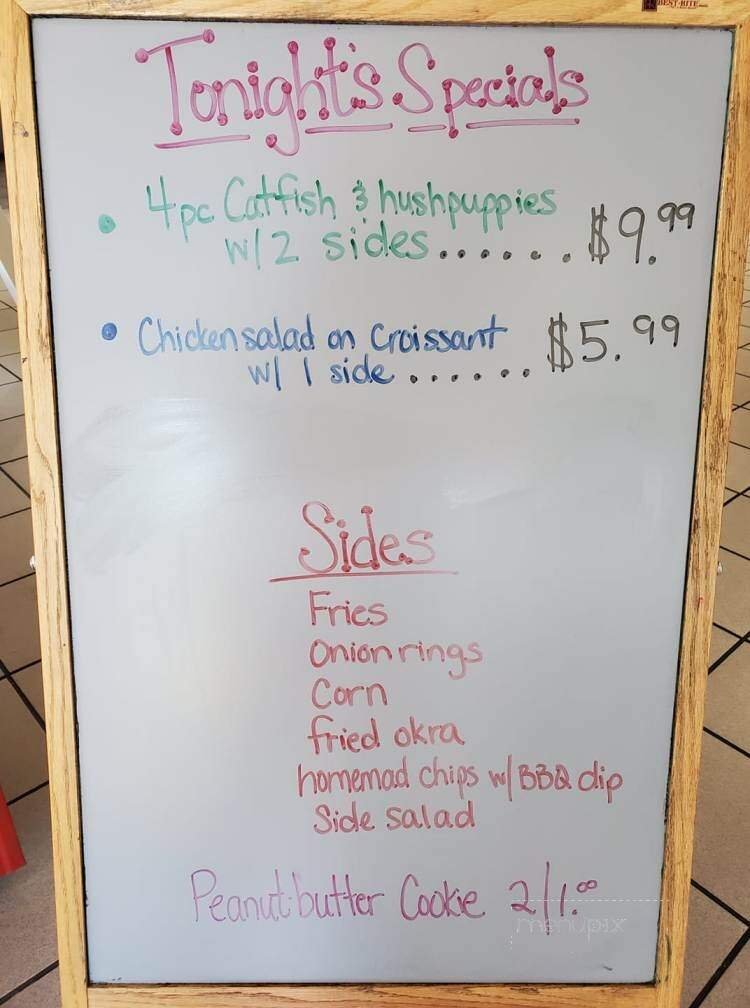 BEST-RITE
Tonight's Specials
• 4pc Catfish & hushpuppies
w/2 sides....... $9.99
• Chicken salad on Croissant
w/ 1 side ...... $5.99
Sides
Fries
Onion rings
Corn
fried okra
homemad chips w/ BBQ dip
Side salad
Peanut butter Cookie 2/1.00
menupix